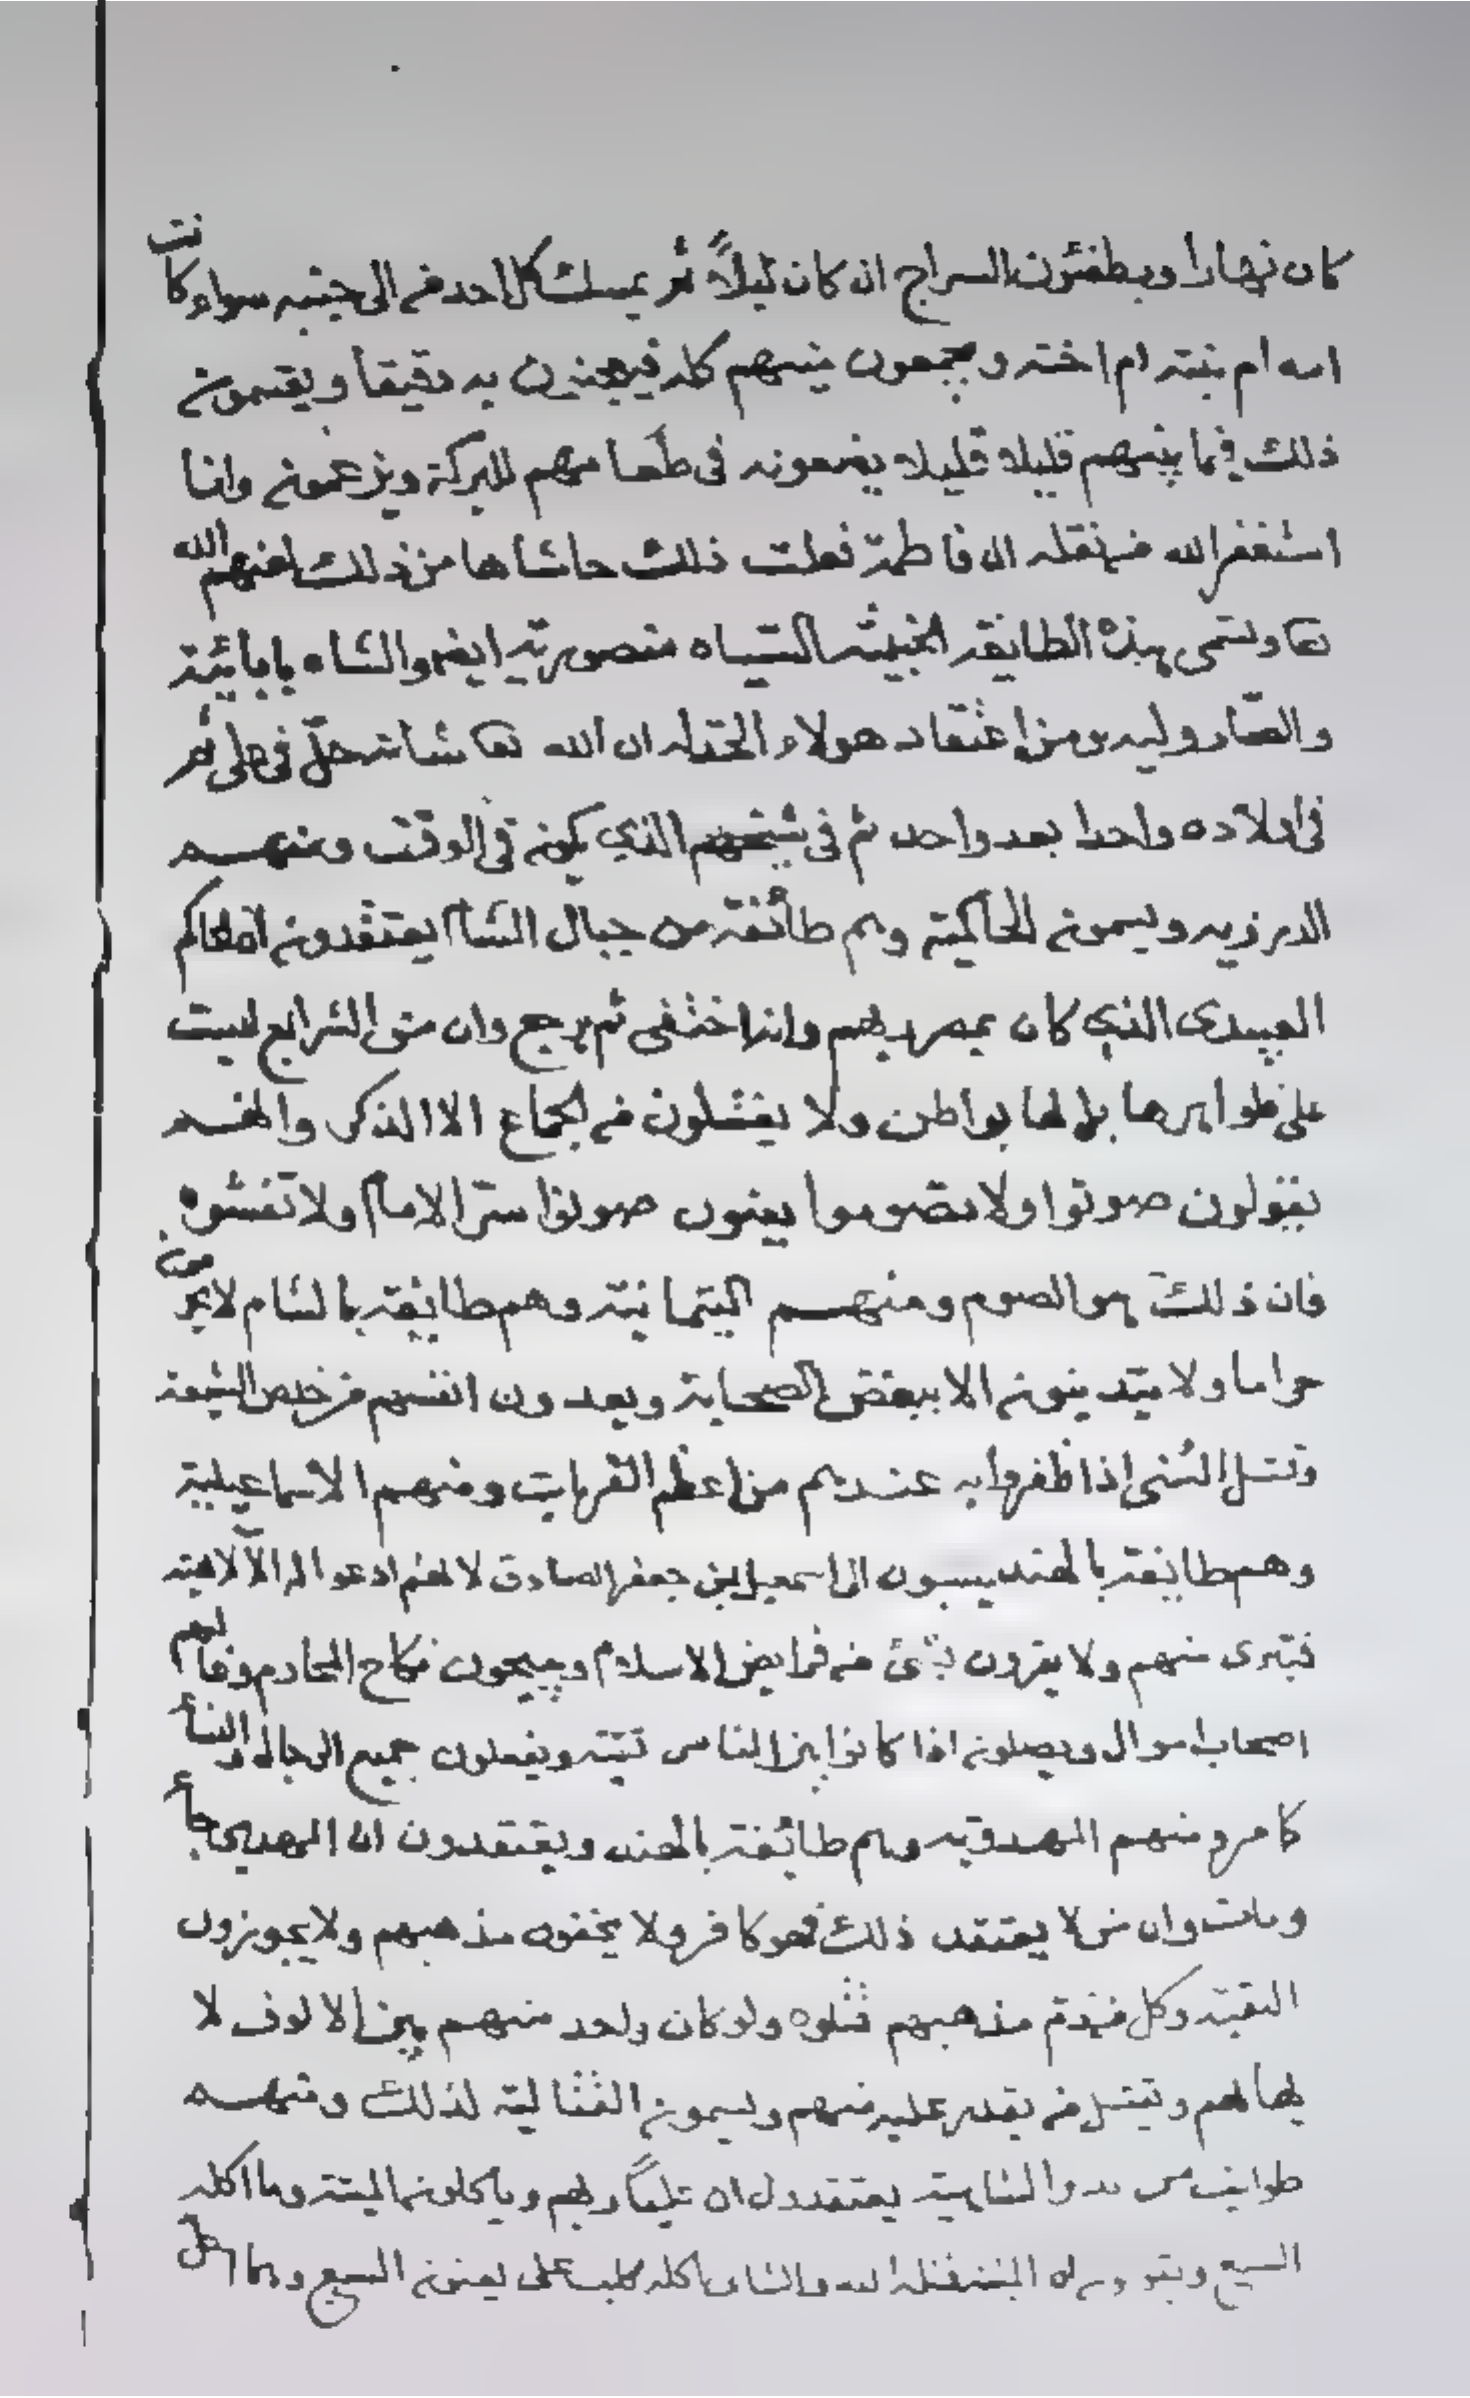 كان نهارا ويطفئون السراج ان كان ليلاً ثم يمسك كل احد من الى جنبه سواء كانت
امه ام بنته ام اخته ويجمعون منيهم كله فيعجنون به دقيقا ويقتسمون
ذلك فيما بينهم قليلا قليلا يضعونه فى طعامهم للبركة ويزعمون وانا
استغفر الله من نقله ان فاطمة فعلت ذلك حاشاها من ذلك لعنهم الله
تعا وتسمى هذه الطائفة الخبيثة منصورية ايضا والشاه بابائية
والصارولية ومن اعتقاد هولاء ان الله تعا شانه حلّ فى على ثم
فى اولاده واحدا بعد واحد ثم فى شيخهم الذي يكون فى الوقت ومنهم
الدرزيه ويسمون الحاكمية وهم طائفة من جبال الشام يعتقدون ان الحاكم
العبيدى الذي كان بمصر ربهم وانه اختفى ثم يرجع وان متن الشرايع ليست
على ظواهرها بل لها بواطن ولا يغتسلون من الجماع الا الذكر وانهم
يقولون صونوا ولا تصوموا يعنون صونوا سرّ الامام ولا تفشوه
فان ذلك هو الصوم ومنهم التيمانية وهم طايفة بالشام لا يحرمون
حراما ولا يتدينون الا ببغض الصحابة ويعدون انفسهم من خلص الشيعة
وقتل السُنى اذا ظفروا به عندهم من اعظم القربات ومنهم الاسماعيلية
وهم طايفة بالهند ينسبون الى اسمعيل بن جعفر الصادق لانهم ادعوا له الالاهية
فتبرى منهم ولا يقرون بشئ من فرايض الاسلام ويبيحون نكاح المحارم وغالبهم
اصحاب اموال ويصلون اذا كانوا بين الناس تقية ويفعلون جميع الرجال والنسأ
كامر ومنهم المهدوية وهم طائفة بالهند ويعتقدون ان المهدي جأ
ومات وان من لا يعتقد ذلك فهو كافر ولا يخفون مذهبهم ولا يجوزون
التقية وكل من ذمّ مذهبهم قتلوه ولو كان واحد منهم بين الالوف لا
يهابهم ويقتل من يقدر عليه منهم ويسمون القتالية لذلك ومنهم
طوايف من الشاهية يعتقدون ان علياً ربهم وياكلون الميتة وما اكله
السبع ويقولون ان الميتة قتله الله والشاة ياكله كلب على يعنون السبع وما اكل